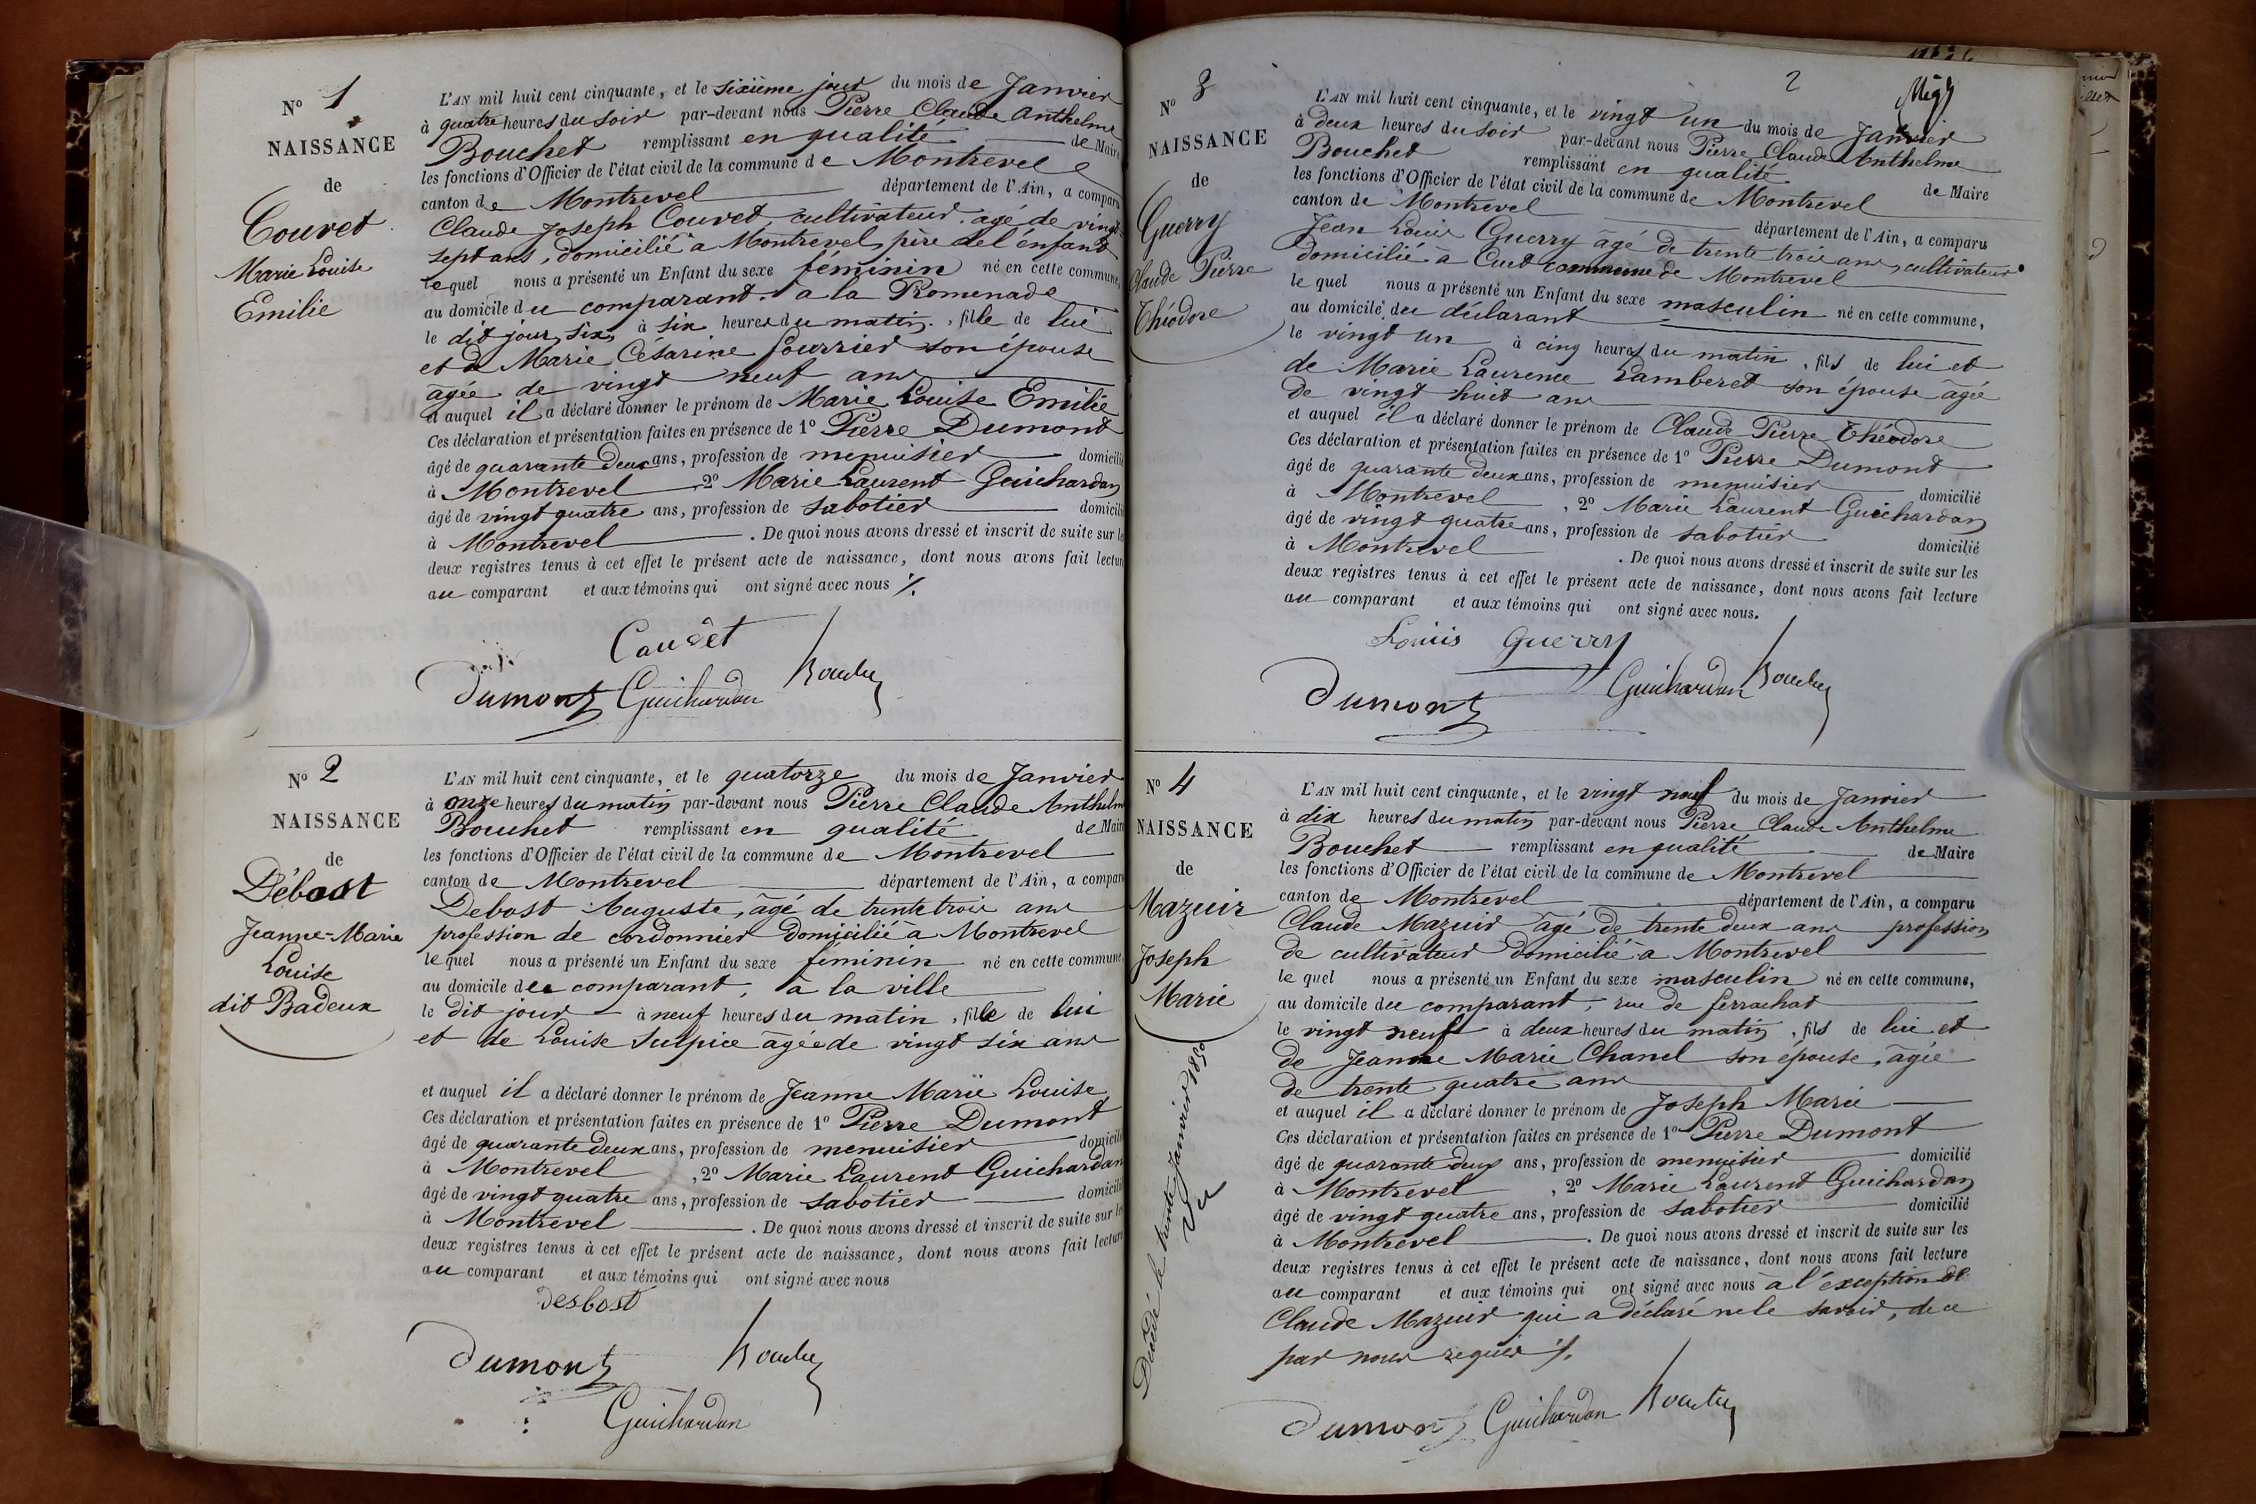 N° 1
NAISSANCE
de
Couvet
Marie Louise
Emilie
L'AN mil huit cent cinquante, et le sixième jour du mois de Janvier
à quatre heures du soir par-devant nous Pierre Claude Anthelme
Bouchet remplissant en qualité de Maire
les fonctions d'Officier de l'état civil de la commune de Montrevel
canton de Montrevel département de l'Ain, a comparu
Claude Joseph Couvet, cultivateur, agé de vingt
sept ans, domicilié à Montrevel, père de l'enfant
lequel nous a présenté un Enfant du sexe féminin né en cette commune,
au domicile du comparant, à la Promenade
le dit jour six, à six heures du matin, fille de lui
et de Marie Césarine Fourrier son épouse
agée de vingt neuf ans
et auquel il a déclaré donner le prénom de Marie Louise Emilie
Ces déclaration et présentation faites en présence de 1° Pierre Dumont
âgé de quarante deux ans, profession de menuisier domicilié
à Montrevel 2° Marie Laurent Guichardan
âgé de vingt quatre ans, profession de sabotier domicilié
à Montrevel . De quoi nous avons dressé et inscrit de suite sur les
deux registres tenus à cet effet le présent acte de naissance, dont nous avons fait lecture
au comparant et aux témoins qui ont signé avec nous ./.
Couvet
Dumont Guichardan Bouchet
N° 2
NAISSANCE
de
Débost
Jeanne-Marie
Louise
dit Badeux
L'AN mil huit cent cinquante, et le quatorze du mois de Janvier
à onze heures du matin par-devant nous Pierre Claude Anthelme
Bouchet remplissant en qualité de Maire
les fonctions d'Officier de l'état civil de la commune de Montrevel
canton de Montrevel département de l'Ain, a comparu
Debost Auguste, âgé de trente trois ans
profession de cordonnier domicilié à Montrevel
lequel nous a présenté un Enfant du sexe féminin né en cette commune,
au domicile du comparant, à la ville
le dit jour à neuf heures du matin, fille de lui
et de Louise Sulpice agée de vingt six ans
et auquel il a déclaré donner le prénom de Jeanne Marie Louise
Ces déclaration et présentation faites en présence de 1° Pierre Dumont
âgé de quarante deux ans, profession de menuisier domicilié
à Montrevel , 2° Marie Laurent Guichardan
âgé de vingt quatre ans, profession de sabotier domicilié
à Montrevel . De quoi nous avons dressé et inscrit de suite sur les
deux registres tenus à cet effet le présent acte de naissance, dont nous avons fait lecture
au comparant et aux témoins qui ont signé avec nous
desbost
Dumont Bouchet
Guichardan
2
N° 3
NAISSANCE
de
Guerry
Claude Pierre
Théodore
L'AN mil huit cent cinquante, et le vingt un du mois de Janvier
à deux heures du soir par-devant nous Pierre Claude Anthelme
Bouchet remplissant en qualité de Maire
les fonctions d'Officier de l'état civil de la commune de Montrevel
canton de Montrevel département de l'Ain, a comparu
Jean Louis Guerry âgé de trente trois ans, cultivateur
domicilié à Cuet commune de Montrevel
le quel nous a présenté un Enfant du sexe masculin né en cette commune,
au domicile du déclarant
le vingt un à cinq heures du matin, fils de lui et
de Marie Laurence Lamberet son épouse âgée
de vingt huit ans
et auquel il a déclaré donner le prénom de Claude Pierre Théodore
Ces déclaration et présentation faites en présence de 1° Pierre Dumont
âgé de quarante deux ans, profession de menuisier domicilié
à Montrevel , 2° Marie Laurent Guichardan
âgé de vingt quatre ans, profession de sabotier domicilié
à Montrevel . De quoi nous avons dressé et inscrit de suite sur les
deux registres tenus à cet effet le présent acte de naissance, dont nous avons fait lecture
au comparant et aux témoins qui ont signé avec nous.
Louis Guerry
Dumont Guichardan Bouchet
N° 4
NAISSANCE
de
Mazuir
Joseph
Marie
Décédé le trente Janvier 1850
L'AN mil huit cent cinquante, et le vingt neuf du mois de Janvier
à dix heures du matin par-devant nous Pierre Claude Anthelme
Bouchet remplissant en qualité de Maire
les fonctions d'Officier de l'état civil de la commune de Montrevel
canton de Montrevel département de l'Ain, a comparu
Claude Mazuir âgé de trente deux ans profession
de cultivateur domicilié à Montrevel
le quel nous a présenté un Enfant du sexe masculin né en cette commune,
au domicile du comparant, rue de Ferrachat
le vingt neuf à deux heures du matin, fils de lui et
de Jeanne Marie Chanel son épouse, âgée
de trente quatre ans
et auquel il a déclaré donner le prénom de Joseph Marie
Ces déclaration et présentation faites en présence de 1° Pierre Dumont
âgé de quarante deux ans, profession de menuisier domicilié
à Montrevel , 2° Marie Laurent Guichardan
âgé de vingt quatre ans, profession de sabotier domicilié
à Montrevel . De quoi nous avons dressé et inscrit de suite sur les
deux registres tenus à cet effet le présent acte de naissance, dont nous avons fait lecture
au comparant et aux témoins qui ont signé avec nous à l'exception de
Claude Mazuir qui a déclaré ne le savoir, de ce
par nous requis ./.
Dumont Guichardan Bouchet